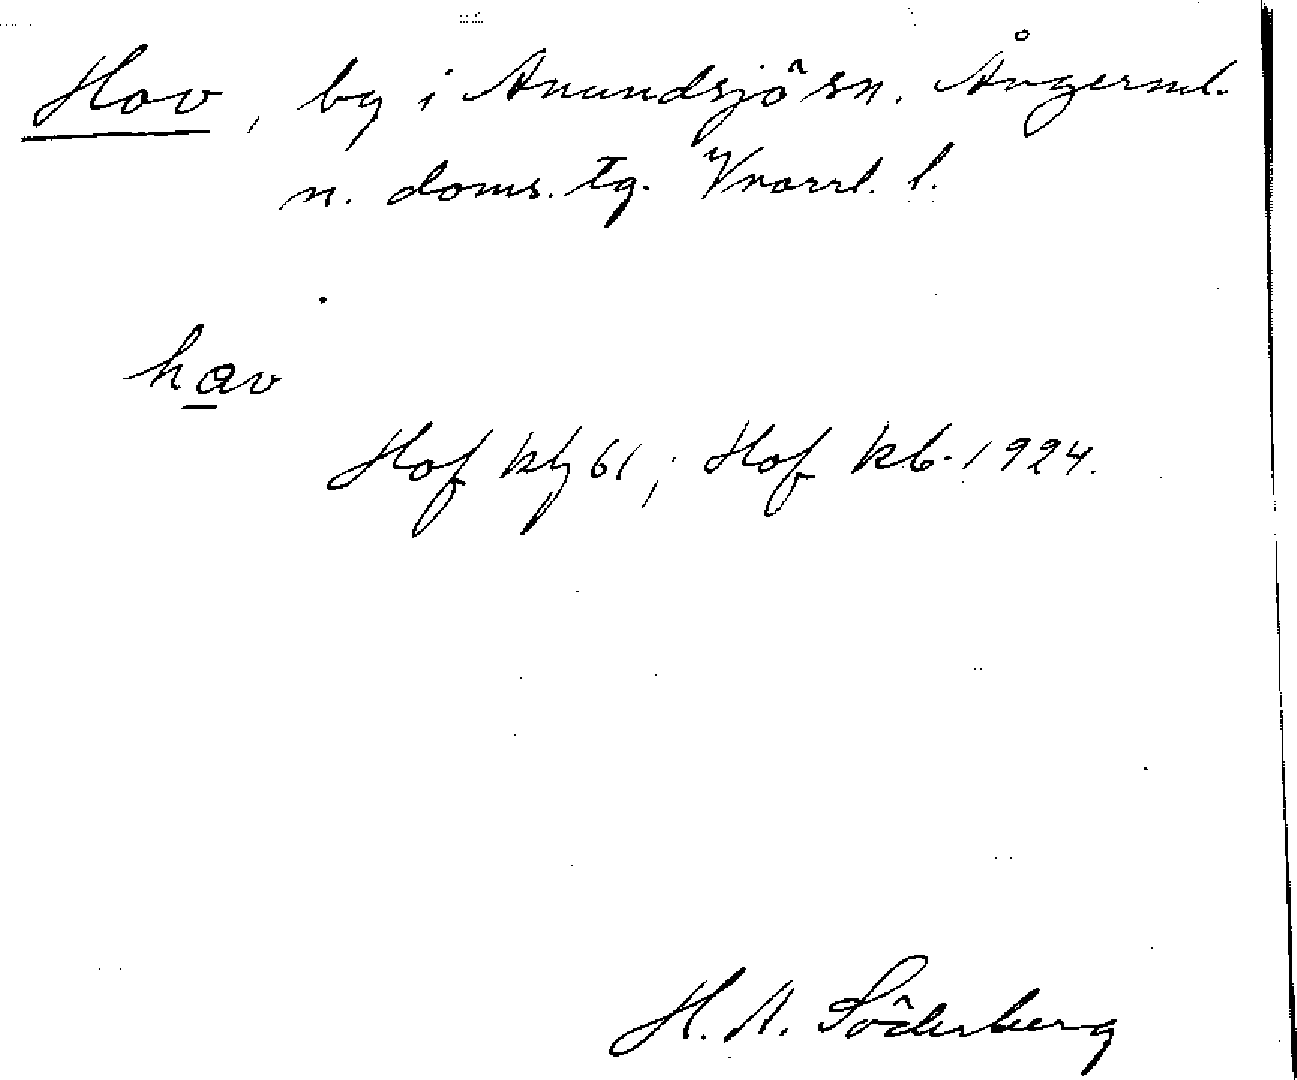 Hov, by i Anundsjö sn. Ångerml.
n. doms. tg. Vnorrl. l.
hav
Hof kbf 61; Hof kb. 1924.
H. A. Söderberg